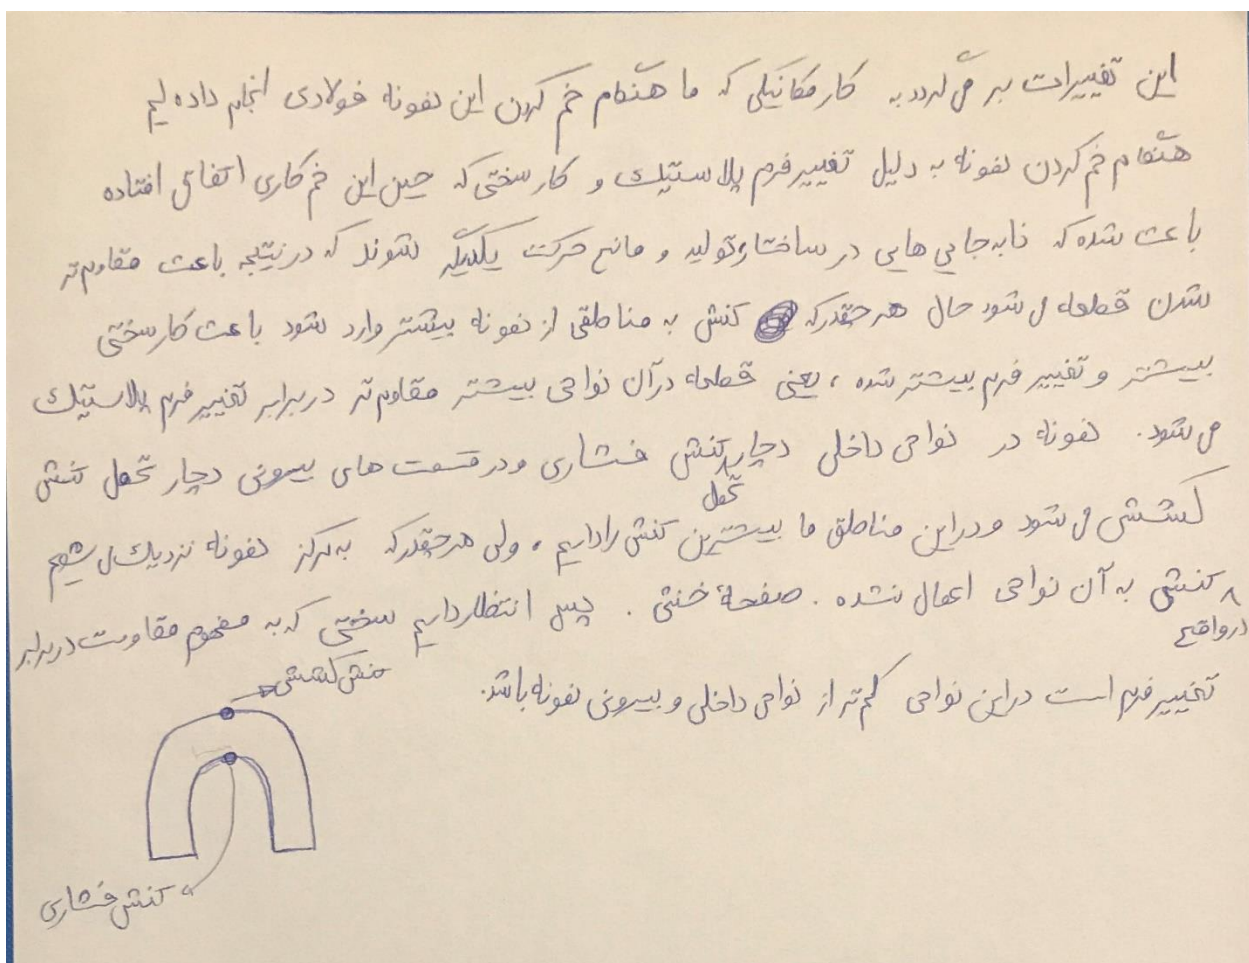 این تغییرات بر می گردد به کار مکانیکی که ما هنگام خم کردن این نمونه فولادی انجام داده ایم
هنگام خم کردن نمونه به دلیل تغییر فرم پلاستیک و کار سختی که حین این خم کاری اتفاق افتاده
باعث شده که نابه جایی هایی در ساختار تولید و مانع حرکت یکدیگر شوند که در نتیجه باعث مقاوم تر
شدن قطعه می شود حال هر چقدر که کنش به مناطقی از نمونه بیشتر وارد شود باعث کار سختی
بیشتر و تغییر فرم بیشتر شده ، یعنی قطعه در آن نواحی بیشتر مقاوم تر در برابر تغییر فرم پلاستیک
می شود. نمونه در نواحی داخلی دچار تحول کنش فشاری و در قسمت های بیرونی دچار تحول تنش
کششی می شود و در این مناطق ما بیشترین کنش را داریم ، ولی هر چقدر که به مرکز نمونه نزدیک می شویم
در واقع کنشی به آن نواحی اعمال نشده . صفحهٔ خنثی . پس انتظار داریم سختی که به مفهوم مقاومت در برابر
تغییر فرم است در این نواحی کم تر از نواحی داخلی و بیرونی نمونه باشد.
تنش کششی
کنش فشاری